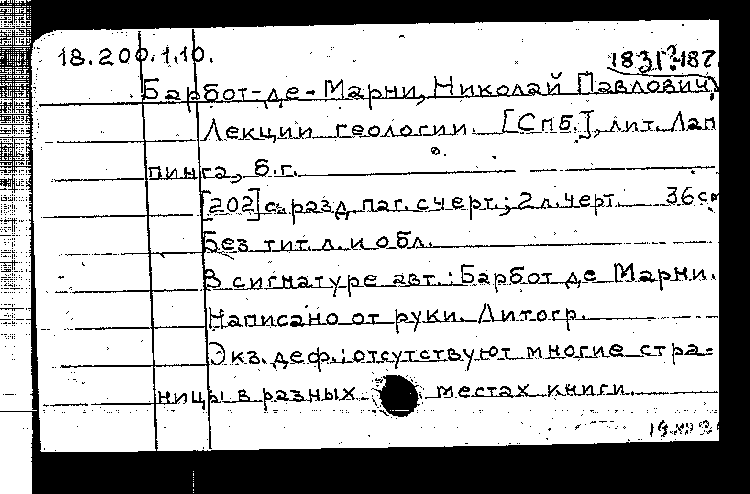 18.200.1.10.
1831?-187
Барбот-де-Марни, Николай Павлович,
Лекции геологии. [СПб.], лит. Лап
пинга, б.г.
[202] с. разд. паг. с черт.; 2 л. черт. 36 см
Без тит. л. и обл.
В сигнатуре авт.: Барбот де Марни.
Написано от руки. Литогр.
Экз. деф.: отсутствуют многие стра-
ницы в разных местах книги.